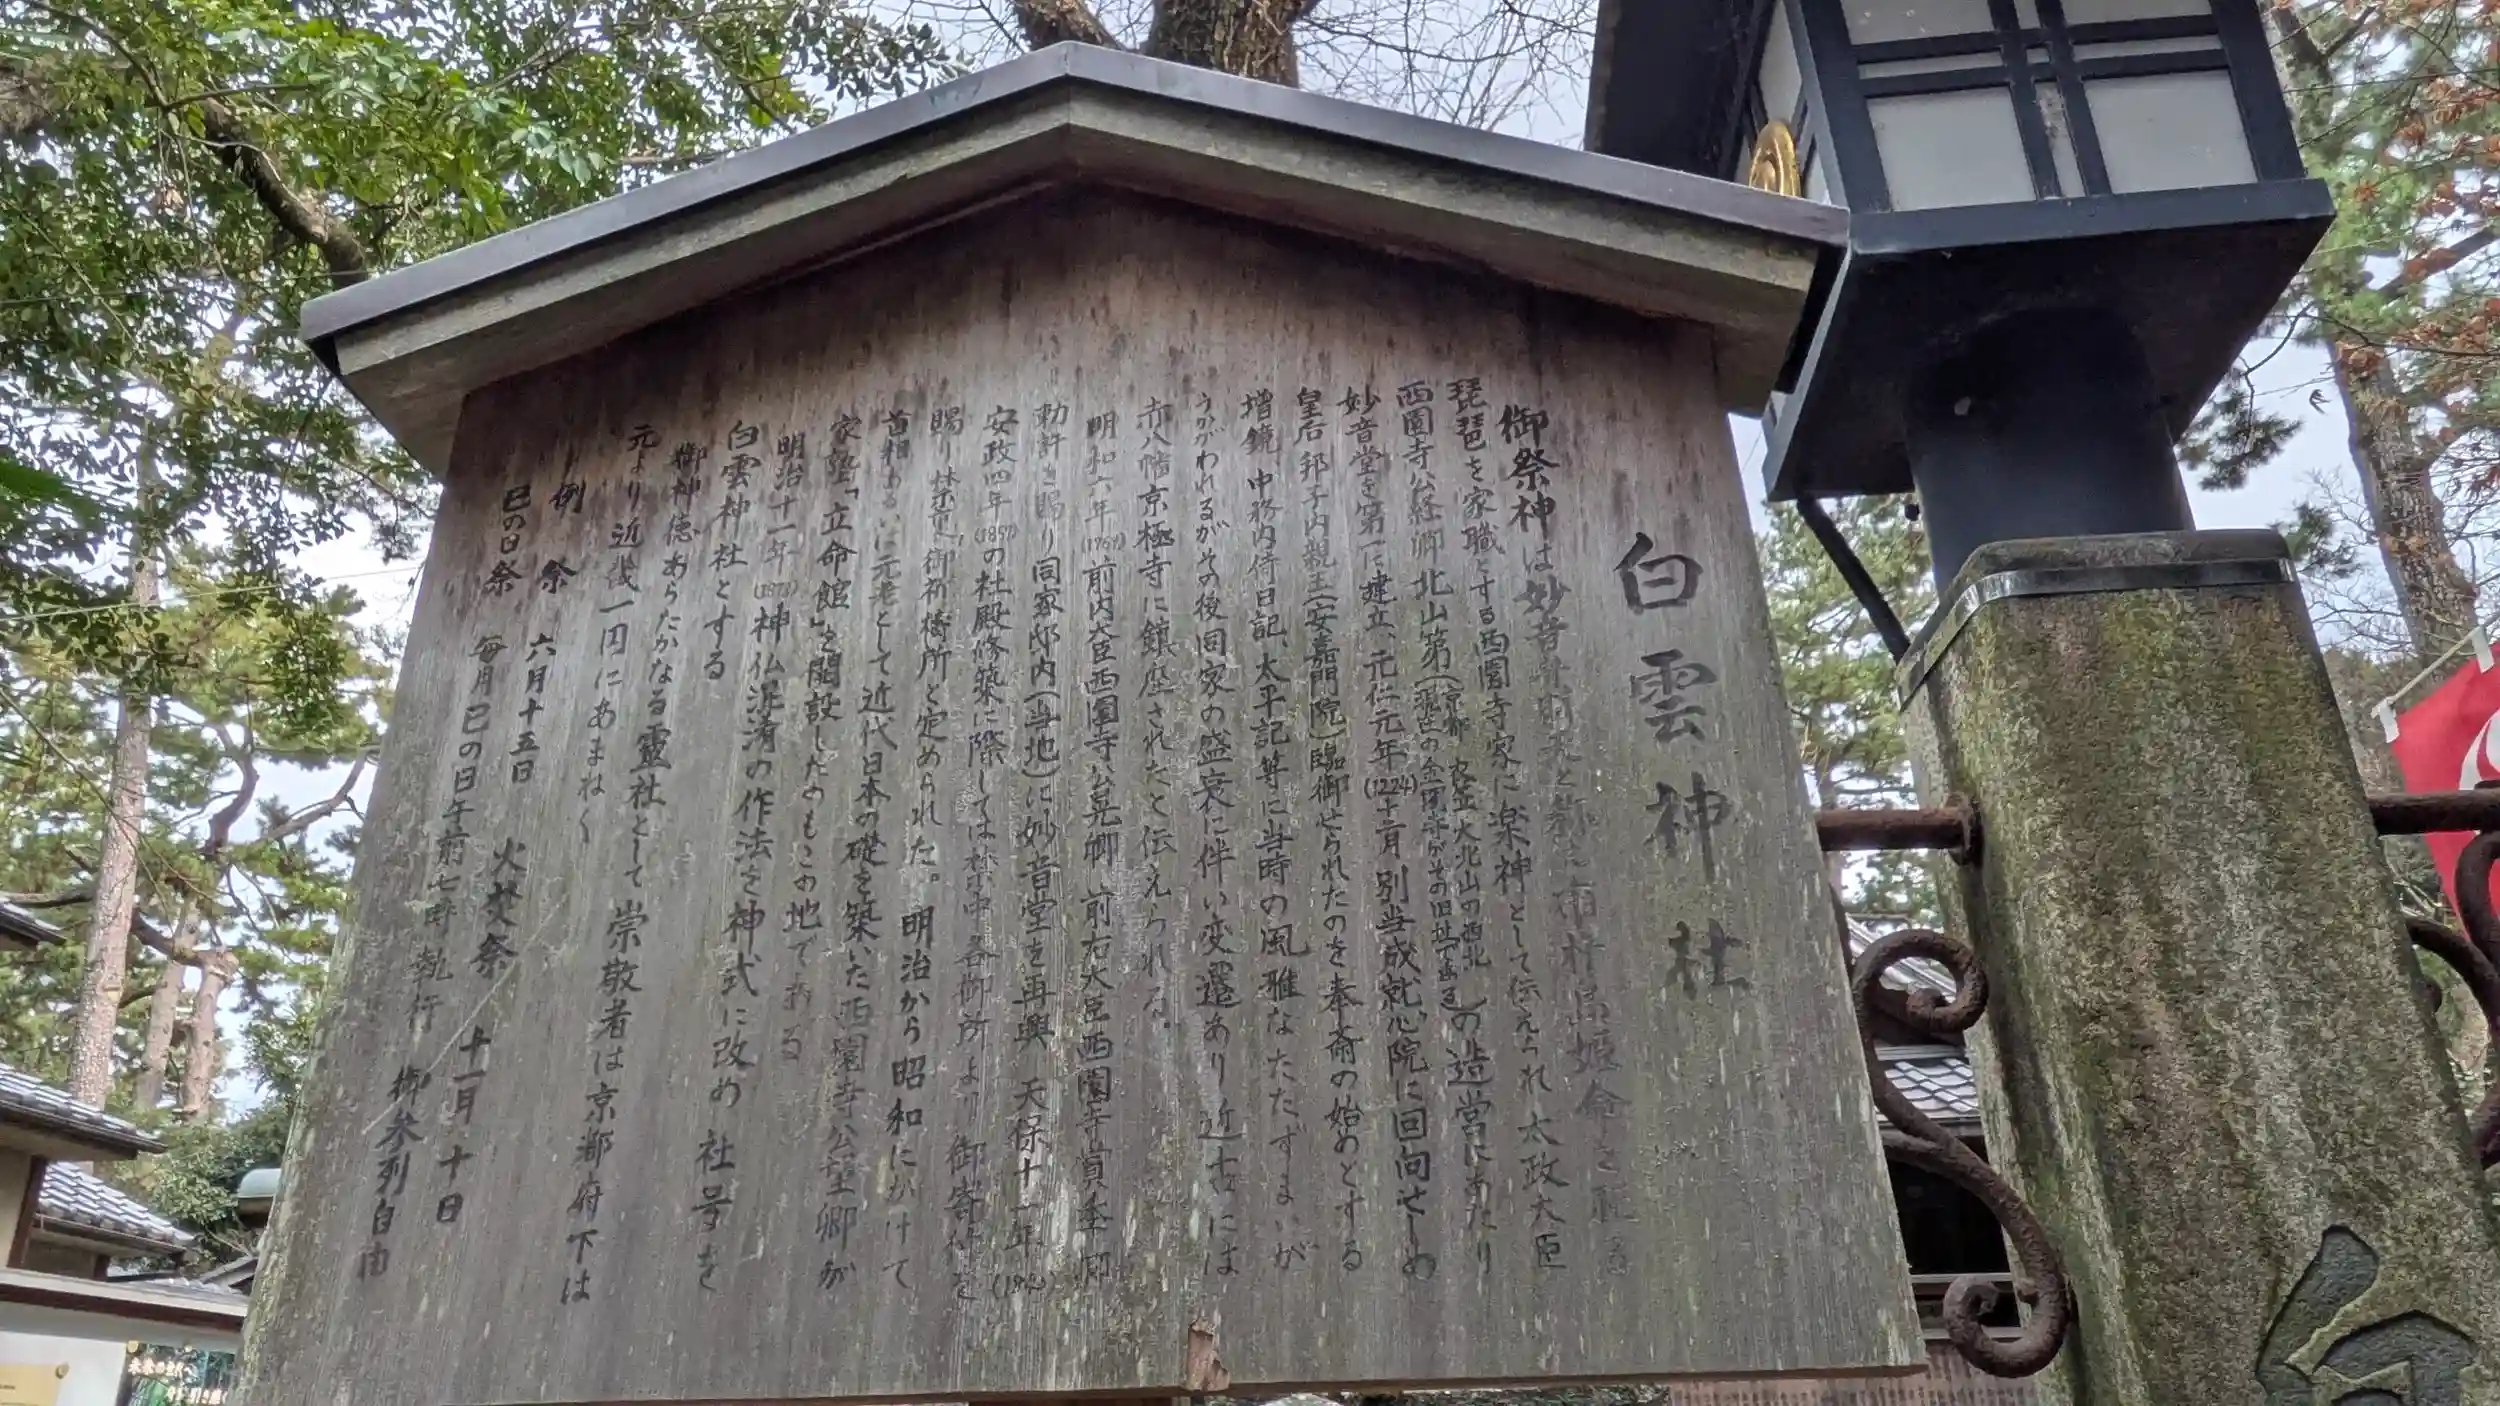 白雲神社
御祭神は妙音弁財天と称え市杵島姫命を祀る
琵琶を家職とする西園寺家に楽神として伝えられ太政大臣
西園寺公経卿北山第(京都 衣笠大北山の西北 現在の金閣寺がその旧址である)の造営にあたり
妙音堂を第一に建立、元仁元年(1224)十二月別当成就心院に回向せしめ
皇后邦子内親王(安嘉門院)臨御せられたのを奉斎の始めとする
増鏡、中務内侍日記、太平記等に当時の風雅なたたずまいが
うかがわれるがその後同家の盛衰に伴い変遷あり近古には
赤八幡京極寺に鎮座されたと伝えられる。
明和六年(1769)前内大臣西園寺公晃卿 前右大臣西園寺賞季卿
勅許を賜り同家邸内(当地)に妙音堂を再興 天保十一年
安政四年(1857)の社殿修築に際しては禁中各御所より御寄付を
賜り禁裏御祈祷所と定められた。明治から昭和にかけて
首相あるいは元老として近代日本の礎を築いた西園寺公望卿が
家塾「立命館」を開設したのもこの地である
明治十一年(1878)神仏混淆の作法を神式に改め 社号を
白雲神社とする
御神徳あらたかなる霊社として崇敬者は京都府下は
元より近畿一円にあまねく
例祭 六月十五日 火焚祭 十一月十日
巳の日祭 毎月巳の日午前七時執行 御参列自由